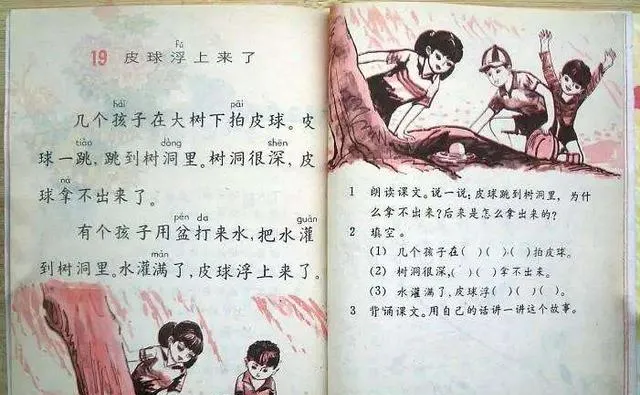 fú
19 皮球浮上来了
hái pāi
几个孩子在大树下拍皮球。皮
tiào dòng shēn
球一跳，跳到树洞里。树洞很深，皮
ná
球拿不出来了。
pén dǎ guàn
有个孩子用盆打来水，把水灌
mǎn
到树洞里。水灌满了，皮球浮上来了。
1 朗读课文。说一说：皮球跳到树洞里，为什
么拿不出来？后来是怎么拿出来的？
2 填空。
(1) 几个孩子在( )( )( )拍皮球。
(2) 树洞很深，( )( )拿不出来。
(3) 水灌满了，皮球浮( )( )( )。
3 背诵课文。用自己的话讲一讲这个故事。